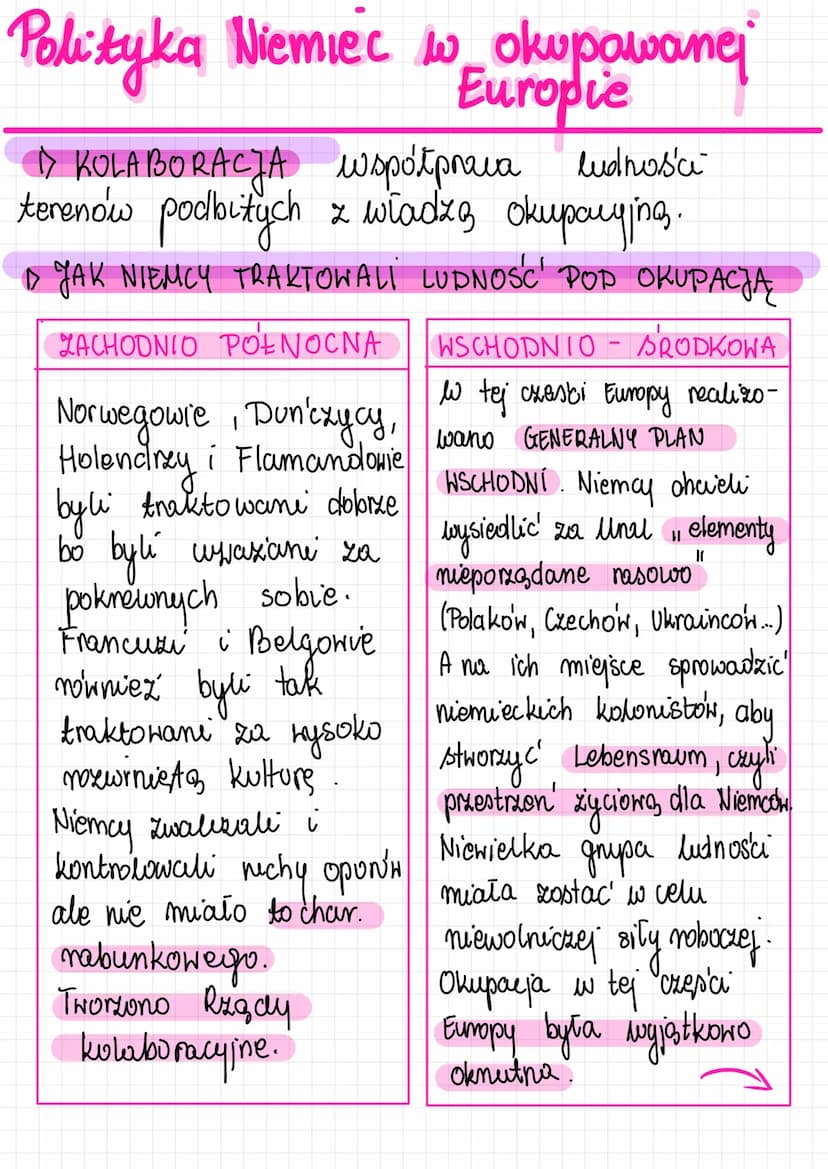 Polityka Niemiec w okupowanej
Europie
▷ KOLABORACJA współpraca ludności
terenów podbitych z władzą okupacyjną.
▷ JAK NIEMCY TRAKTOWALI LUDNOŚĆ POD OKUPACJĄ
ZACHODNIO PÓŁNOCNA
Norwegowie, Duńczycy,
Holendrzy i Flamandowie
byli traktowani dobrze
bo byli uważani za
pokrewnych sobie.
Francuzi i Belgowie
również byli tak
traktowani za wysoko
rozwiniętą kulturę.
Niemcy zwalczali i
kontrolowali ruchy oporów
ale nie miało to char.
rabunkowego.
Tworzono Rządy
kolaboracyjne.
WSCHODNIO - ŚRODKOWA
W tej części Europy realizo-
wano GENERALNY PLAN
WSCHODNI. Niemcy chcieli
wysiedlić za Ural „elementy
nieporządane rasowo"
(Polaków, Czechów, Ukrainców...)
A na ich miejsce sprowadzić
niemieckich kolonistów, aby
stworzyć Lebensraum, czyli
przestrzeń życiową dla Niemców.
Niewielka grupa ludności
miała zostać w celu
niewolniczej siły roboczej.
Okupacja w tej części
Europy była wyjątkowo
okrutna.